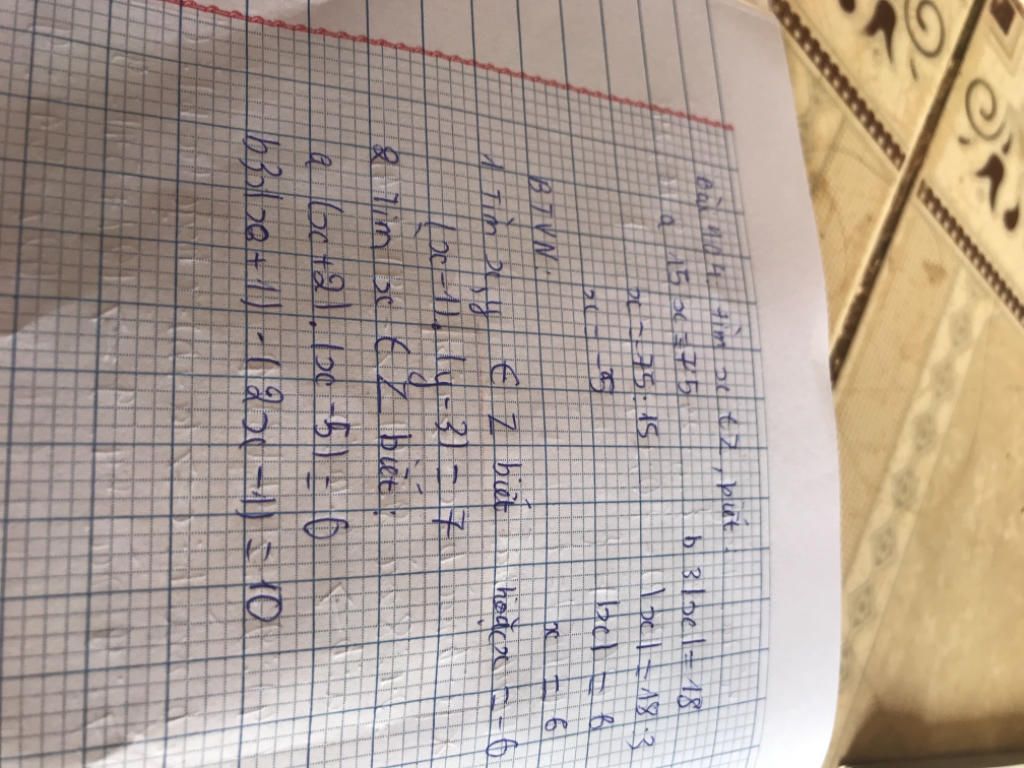 Bài 4 tìm x ∈ Z, biết:
a 15x = -75
b 3|x| = 18
x = -75:15
|x| = 18:3
x = -5
|x| = 6
x = 6
hoặc x = -6
BTVN:
1 Tìn x,y ∈ Z biết
(x-1).(y-3) = 7
2 Tìm x ∈ Z biết:
a (x+2).(x-5) = 6
(x+1).(2x-1) = 10